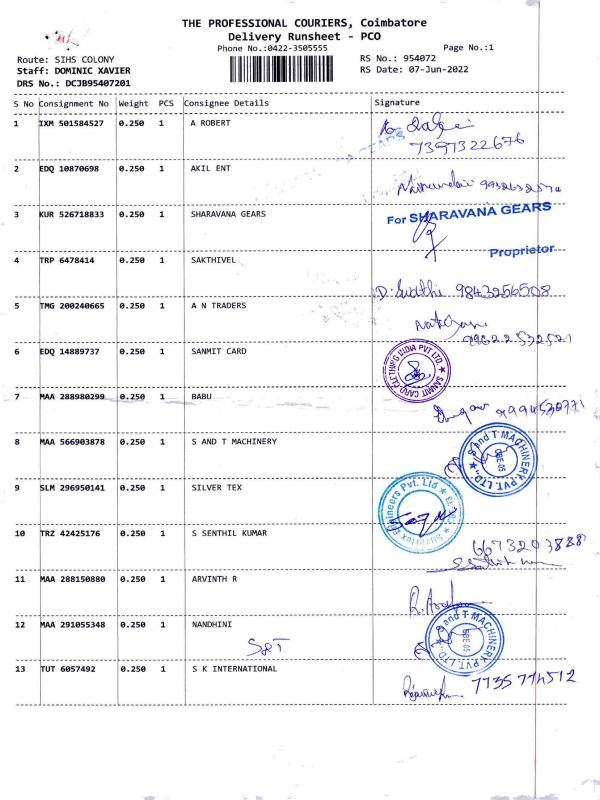 THE PROFESSIONAL COURIERS, Coimbatore
Delivery Runsheet - PCO
Phone No.:0422-3505555
Page No.:1
Route: SIHS COLONY
RS No.: 954072
Staff: DOMINIC XAVIER
RS Date: 07-Jun-2022
DRS No.: DCJB95407201
S No Consignment No Weight PCS Consignee Details Signature
1 IXM 501584527 0.250 1 A ROBERT
7397322676
2 EDQ 10870698 0.250 1 AKIL ENT
3 KUR 526718833 0.250 1 SHARAVANA GEARS
For SHARAVANA GEARS
Proprietor
4 TRP 6478414 0.250 1 SAKTHIVEL
9843256508
5 TMG 200240665 0.250 1 A N TRADERS
6 EDQ 14889737 0.250 1 SANMIT CARD
SANMIT CARD CLOTHING INDIA PVT LTD.
7 MAA 288980299 0.250 1 BABU
8 MAA 566903878 0.250 1 S AND T MACHINERY
S and T MACHINERY PVT. LTD.,
9 SLM 296950141 0.250 1 SILVER TEX
Engineers Pvt. Ltd
10 TRZ 42425176 0.250 1 S SENTHIL KUMAR
11 MAA 288150880 0.250 1 ARVINTH R
12 MAA 291055348 0.250 1 NANDHINI
S&T
S and T MACHINERY PVT. LTD.,
13 TUT 6057492 0.250 1 S K INTERNATIONAL
7735 774512